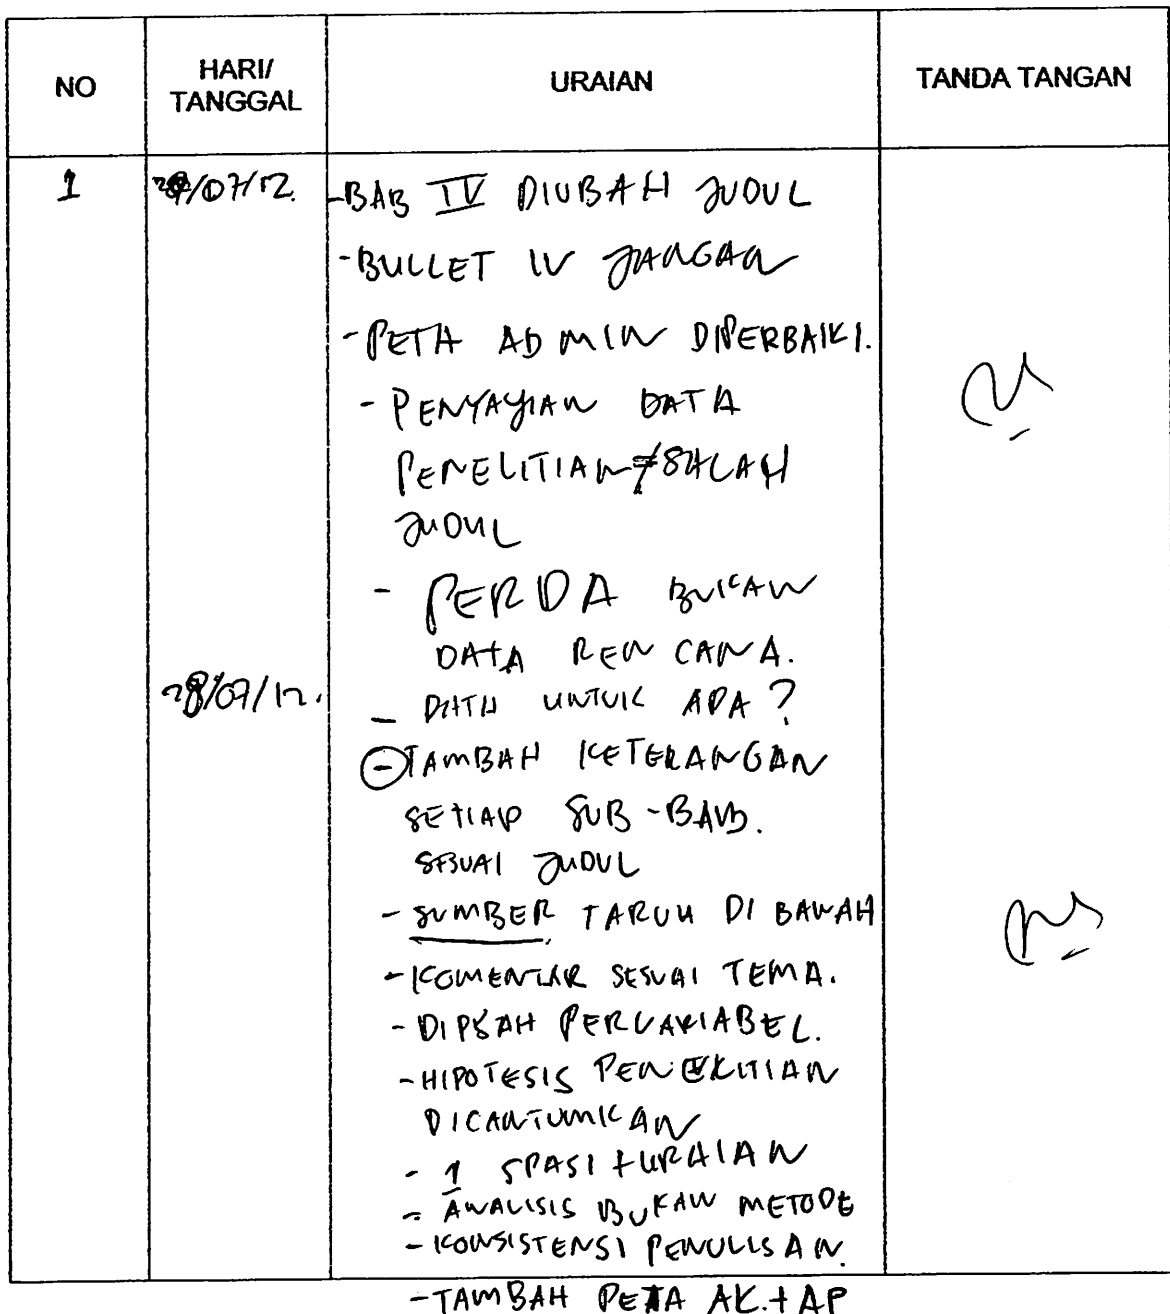 NO HARI/ TANGGAL URAIAN TANDA TANGAN
1 /07/12. -BAB IV DIUBAH JUDUL
-BULLET IV JANGAN
-PETA ADMIN DIPERBAIKI.
- PENYAJIAN DATA
PENELITIAN ≠ SALAH
JUDUL
- PERDA BUKAN
DATA RENCANA.
28/07/12. - DATA UNTUK APA ?
- TAMBAH KETERANGAN
SETIAP SUB-BAB.
SESUAI JUDUL
- SUMBER TARUH DI BAWAH
- KOMENTAR SESUAI TEMA.
- DIPISAH PERVARIABEL.
- HIPOTESIS PENELITIAN
DICANTUMKAN
- 1 SPASI + URAIAN
- ANALISIS BUKAN METODE
- KONSISTENSI PENULISAN.
- TAMBAH PETA AK. + AP